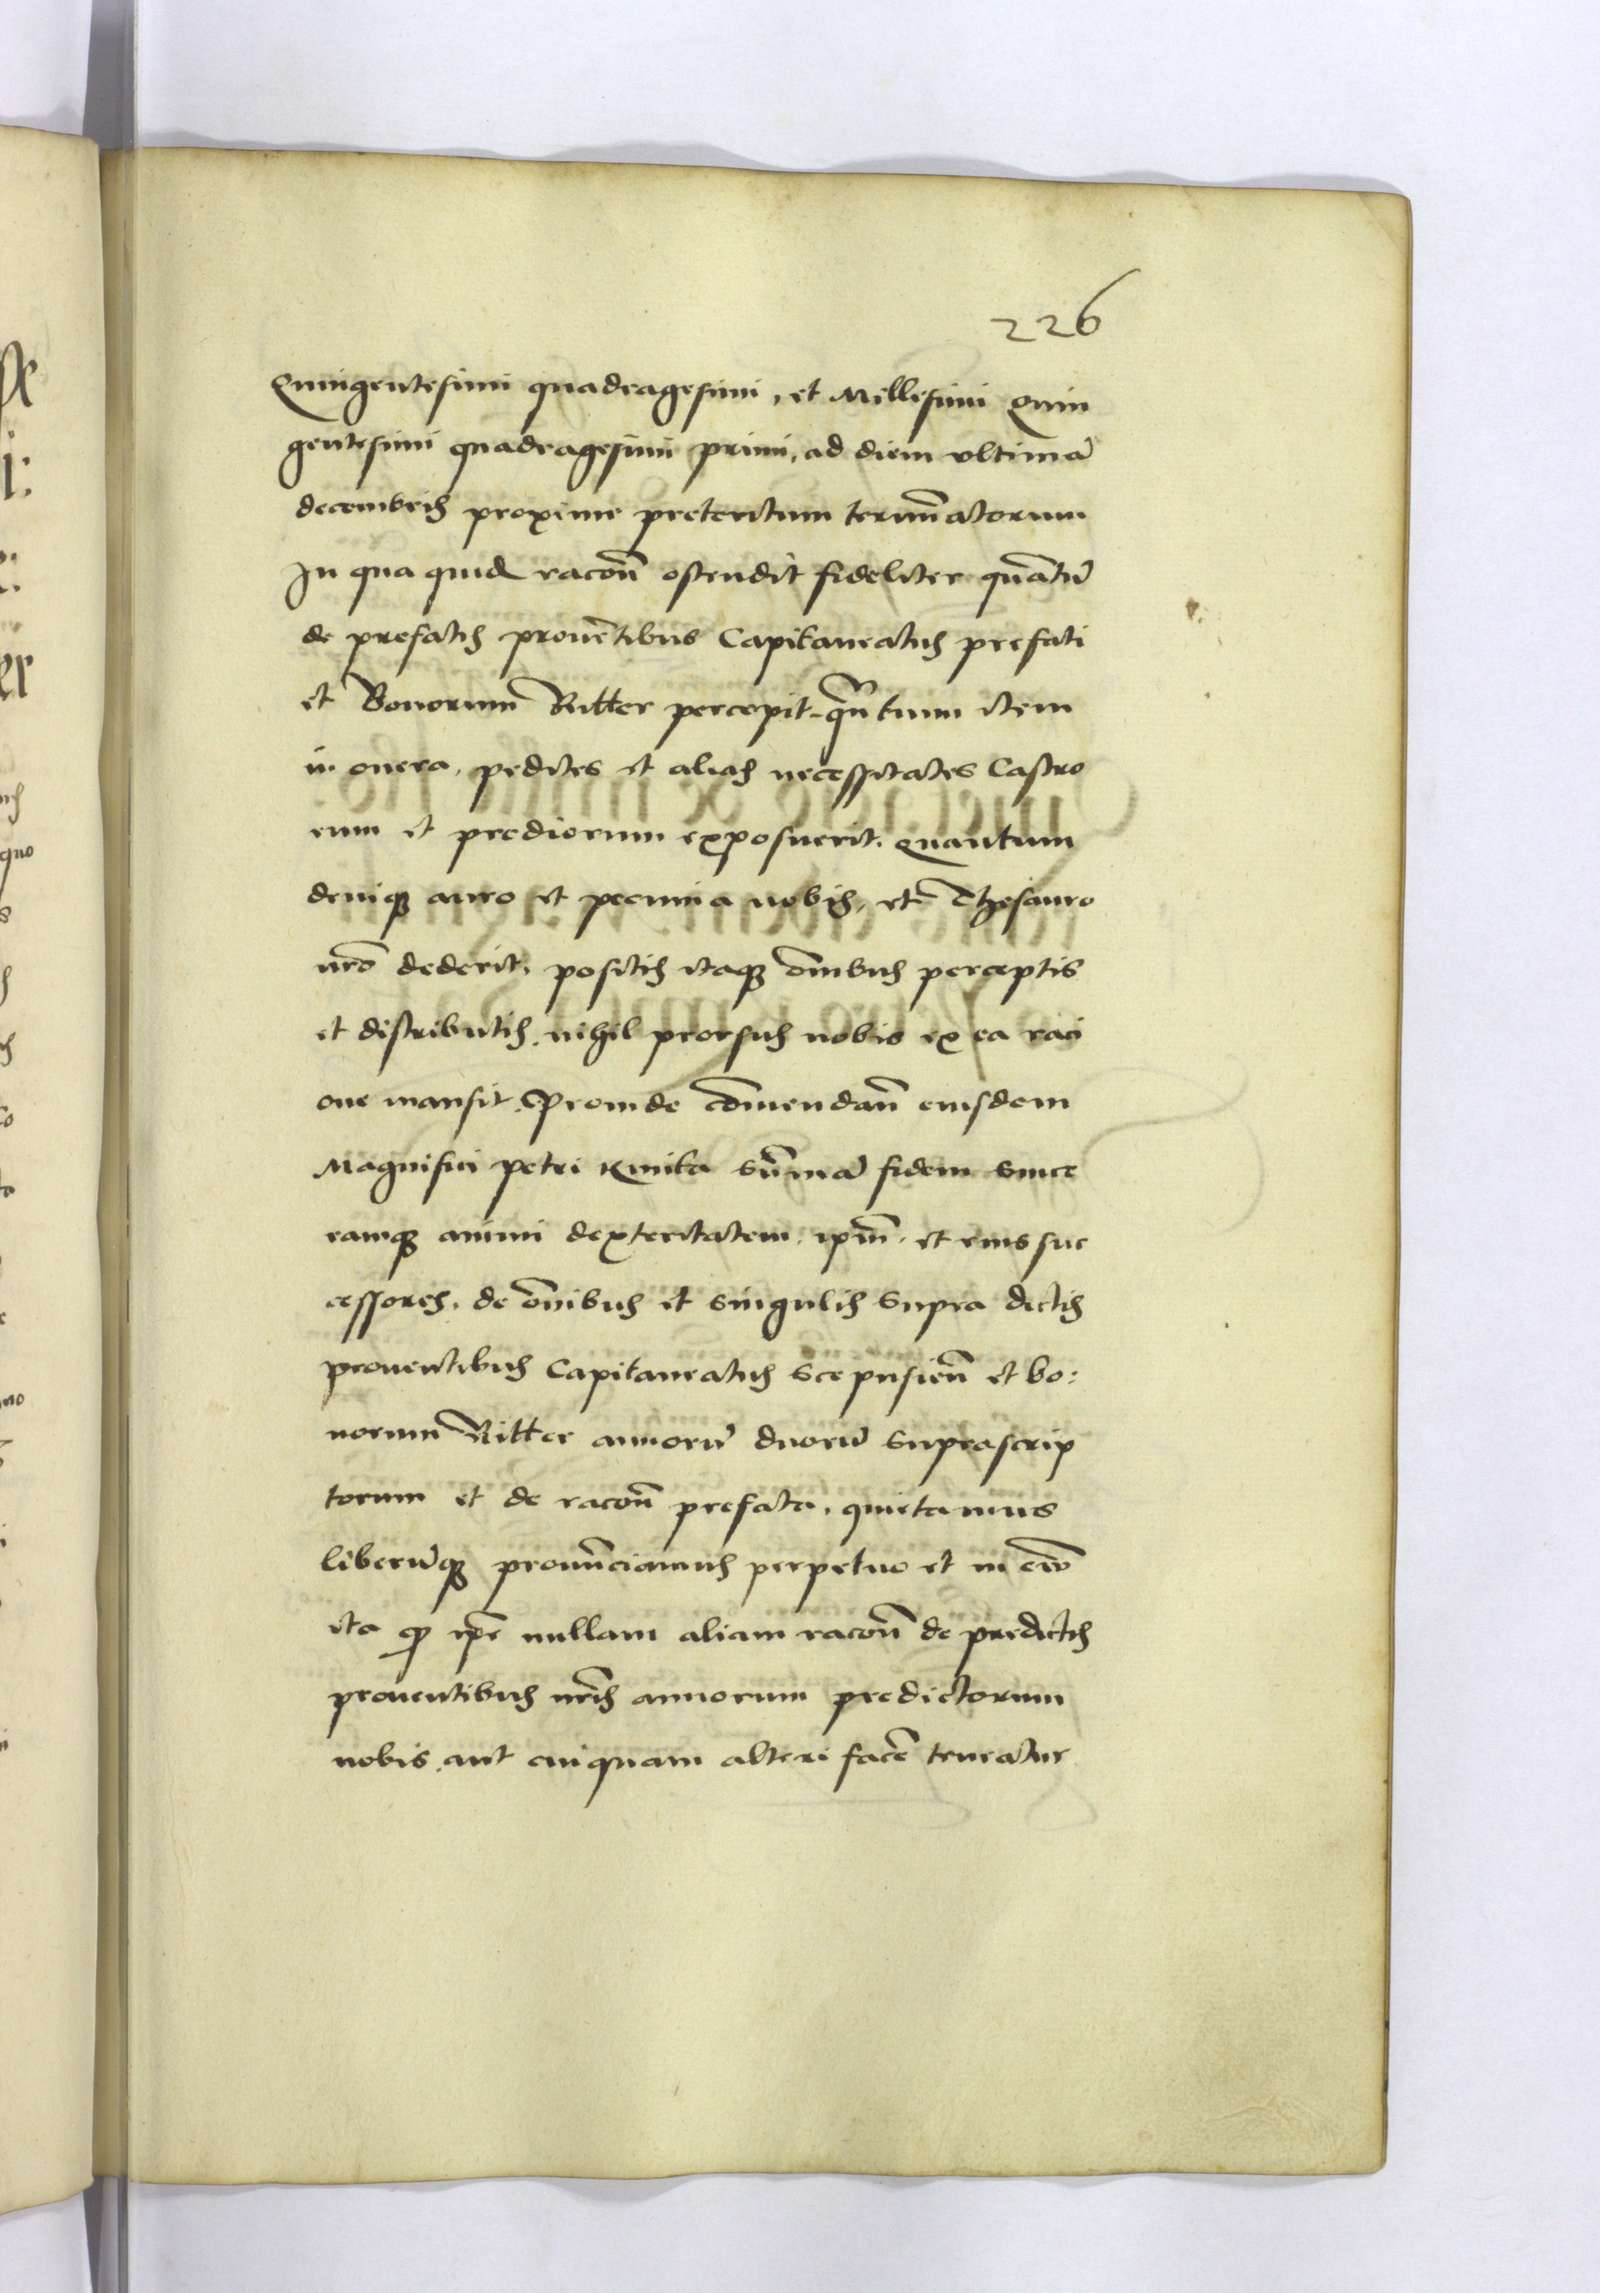 226
Quingentesimi quadragesimi, et Millesimi Quin
gentesimi quadragesimi primi, ad diem vltimā
decembris proxime preteritum termīatorum
In qua quid racōn ostendit fideliter quātū
de prefatis prouētibus Capitaneatus prefati
et Bonorum Ritter percepit, qūtum item
in onera, pedites et alias necessitates Castro
rum et prediorum exposuerit. Quantum
deniq̧ auro et pecunia nobis, et Thesauro
nrō dederit, positis itaq̧ om̄ibus perceptis
et distributis, nihil prorsus nobis ex ea raci
one mansit. Proinde cōmendan̄ eiusdem
Magnifici petri Kmita sūmā fidem since
ramq̧ animi dexteritatem, ipm̄, et eius suc
cessores, de om̄ibus et singulis supra dictis
prouentibus Capitaneatus Scepusien̄ et bo:
norum Ritter annorū duorū suprascrip
torum et de racōn prefata, quietamus
liberūq̧ pronūciamus perpetuo et in eūo
ita q̄ ip̄e nullam aliam racōn de predictis
prouentibus nrīs annorum predictorum
nobis, aut cuiquam alteri facē teneatur